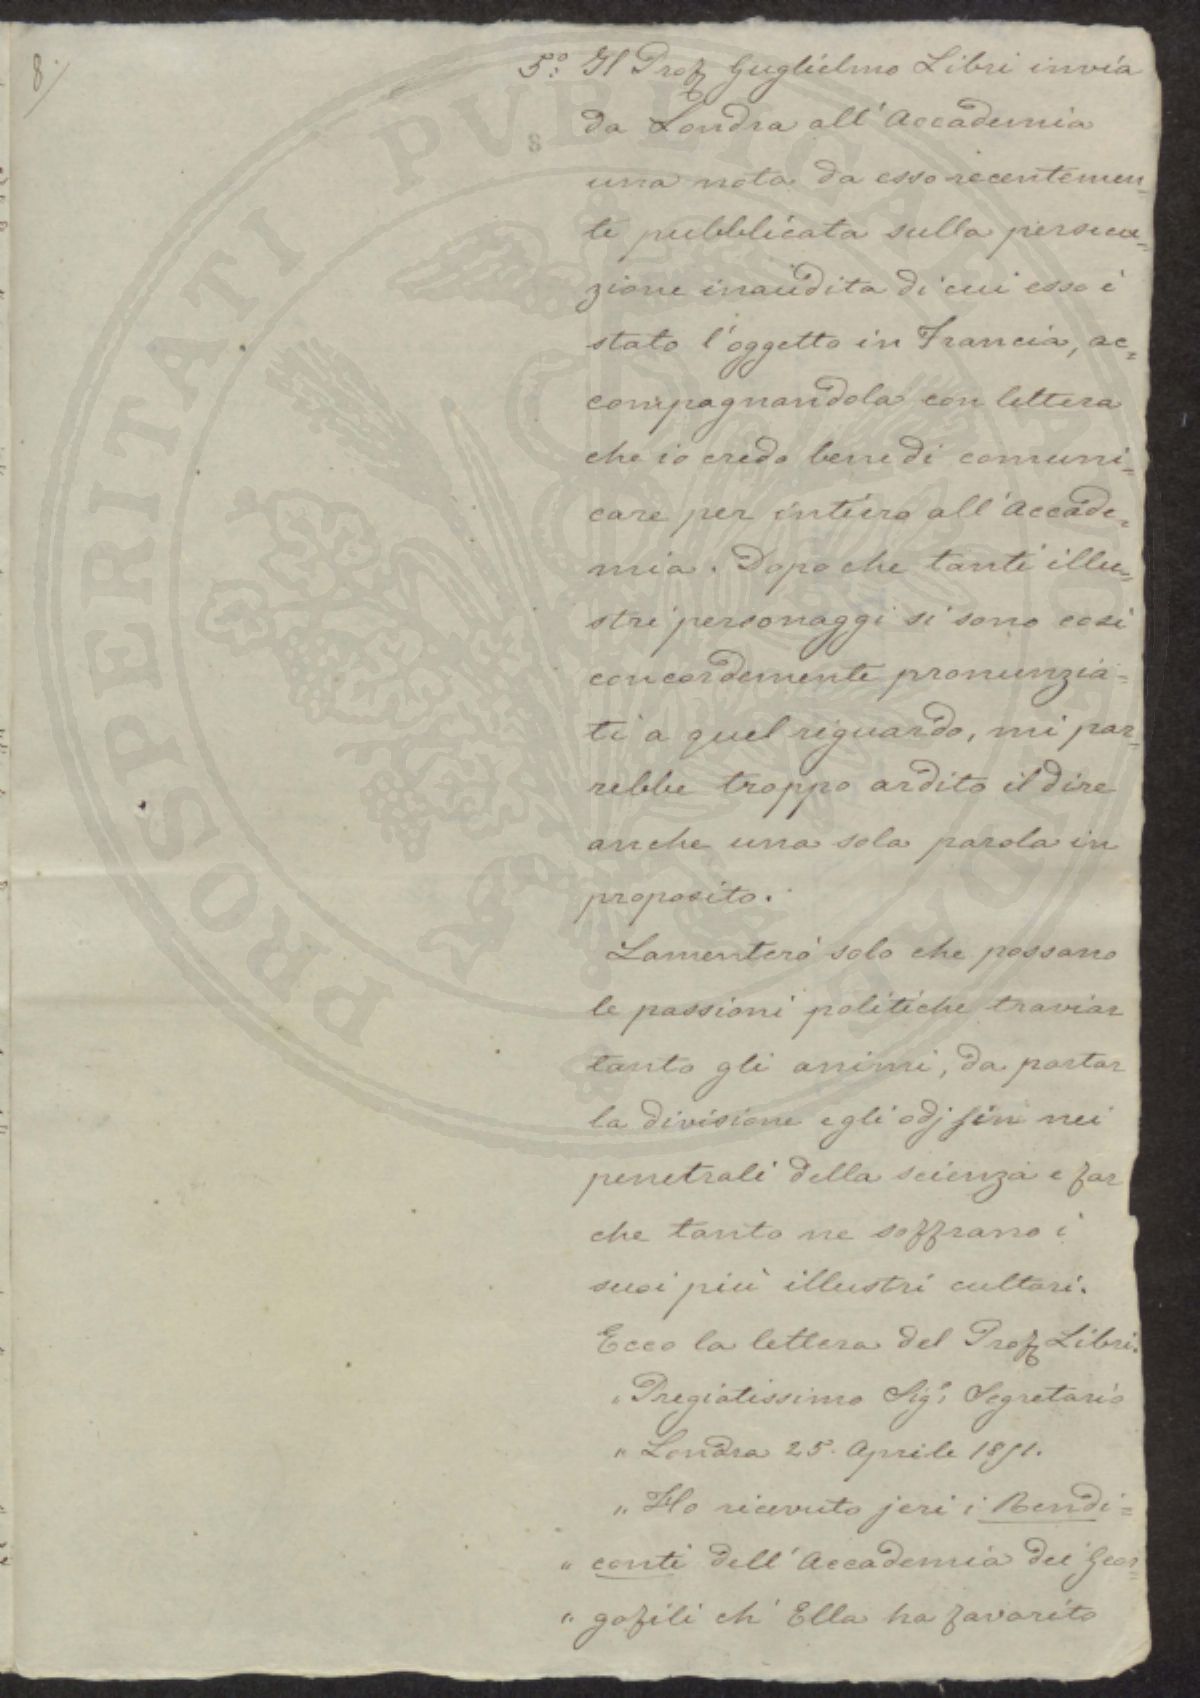 8.
5.° Il Prof Guglielmo Libri invia
da Londra all'Accademia
una nota da esso recentemen=
te pubblicata sulla persecu=
zione inaudita di cui esso è
stato l'oggetto in Francia, ac=
compagnandola con lettera
che io credo bene di comuni=
care per intiero all'Accade=
mia. Dopo che tanti illu=
stri personaggi si sono così
concordemente pronunzia=
ti a quel riguardo, mi par=
rebbe troppo ardito il dire
anche una sola parola in
proposito.
Lamenterò solo che possano
le passioni politiche traviar
tanto gli animi, da portar
la divisione e gli odj fin nei
penetrali della scienza e far
che tanto ne soffrano i
suoi più illustri cultori.
Ecco la lettera del Prof Libri.
„ Pregiatissimo Sig.r Segretario
„ Londra 25. Aprile 1851.
„ Ho ricevuto jeri i Rendi=
„ conti dell'Accademia dei Geor=
„ gofili ch'Ella ha favorito
PROSPERITATI PVBLICAE
8